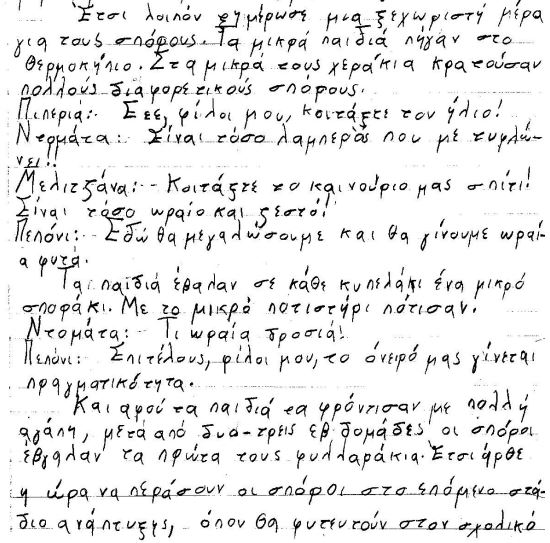 Έτσι λοιπόν ξημέρωσε μια ξεχωριστή μέρα
για τους σπόρους. Τα μικρά παιδιά πήγαν στο
θερμοκήπιο. Στα μικρά τους χεράκια κρατούσαν
πολλούς διαφορετικούς σπόρους.
Πιπεριά:- Εεε, φίλοι μου, κοιτάξτε τον ήλιο!
Ντομάτα:- Είναι τόσο λαμπερός που με τυφλώ-
νει!!
Μελιτζάνα:- Κοιτάξτε το καινούριο μας σπίτι!
Είναι τόσο ωραίο και ζεστό!
Πεπόνι:- Εδώ θα μεγαλώσουμε και θα γίνουμε ωραί-
α φυτά.
Τα παιδιά έβαλαν σε κάθε κυπελάκι ένα μικρό
σποράκι. Με το μικρό ποτιστήρι πότισαν.
Ντομάτα:- Τι ωραία δροσιά!
Πεπόνι:- Επιτέλους, φίλοι μου, το όνειρό μας γίνεται
πραγματικότητα.
Και αφού τα παιδιά τα φρόντισαν με πολλή
αγάπη, μετά από δυο-τρεις εβδομάδες οι σπόροι
έβγαλαν τα πρώτα τους φυλλαράκια. Έτσι ήρθε
η ώρα να περάσουν οι σπόροι στο επόμενο στά-
διο ανάπτυξης, όπου θα φυτευτούν στον σχολικό